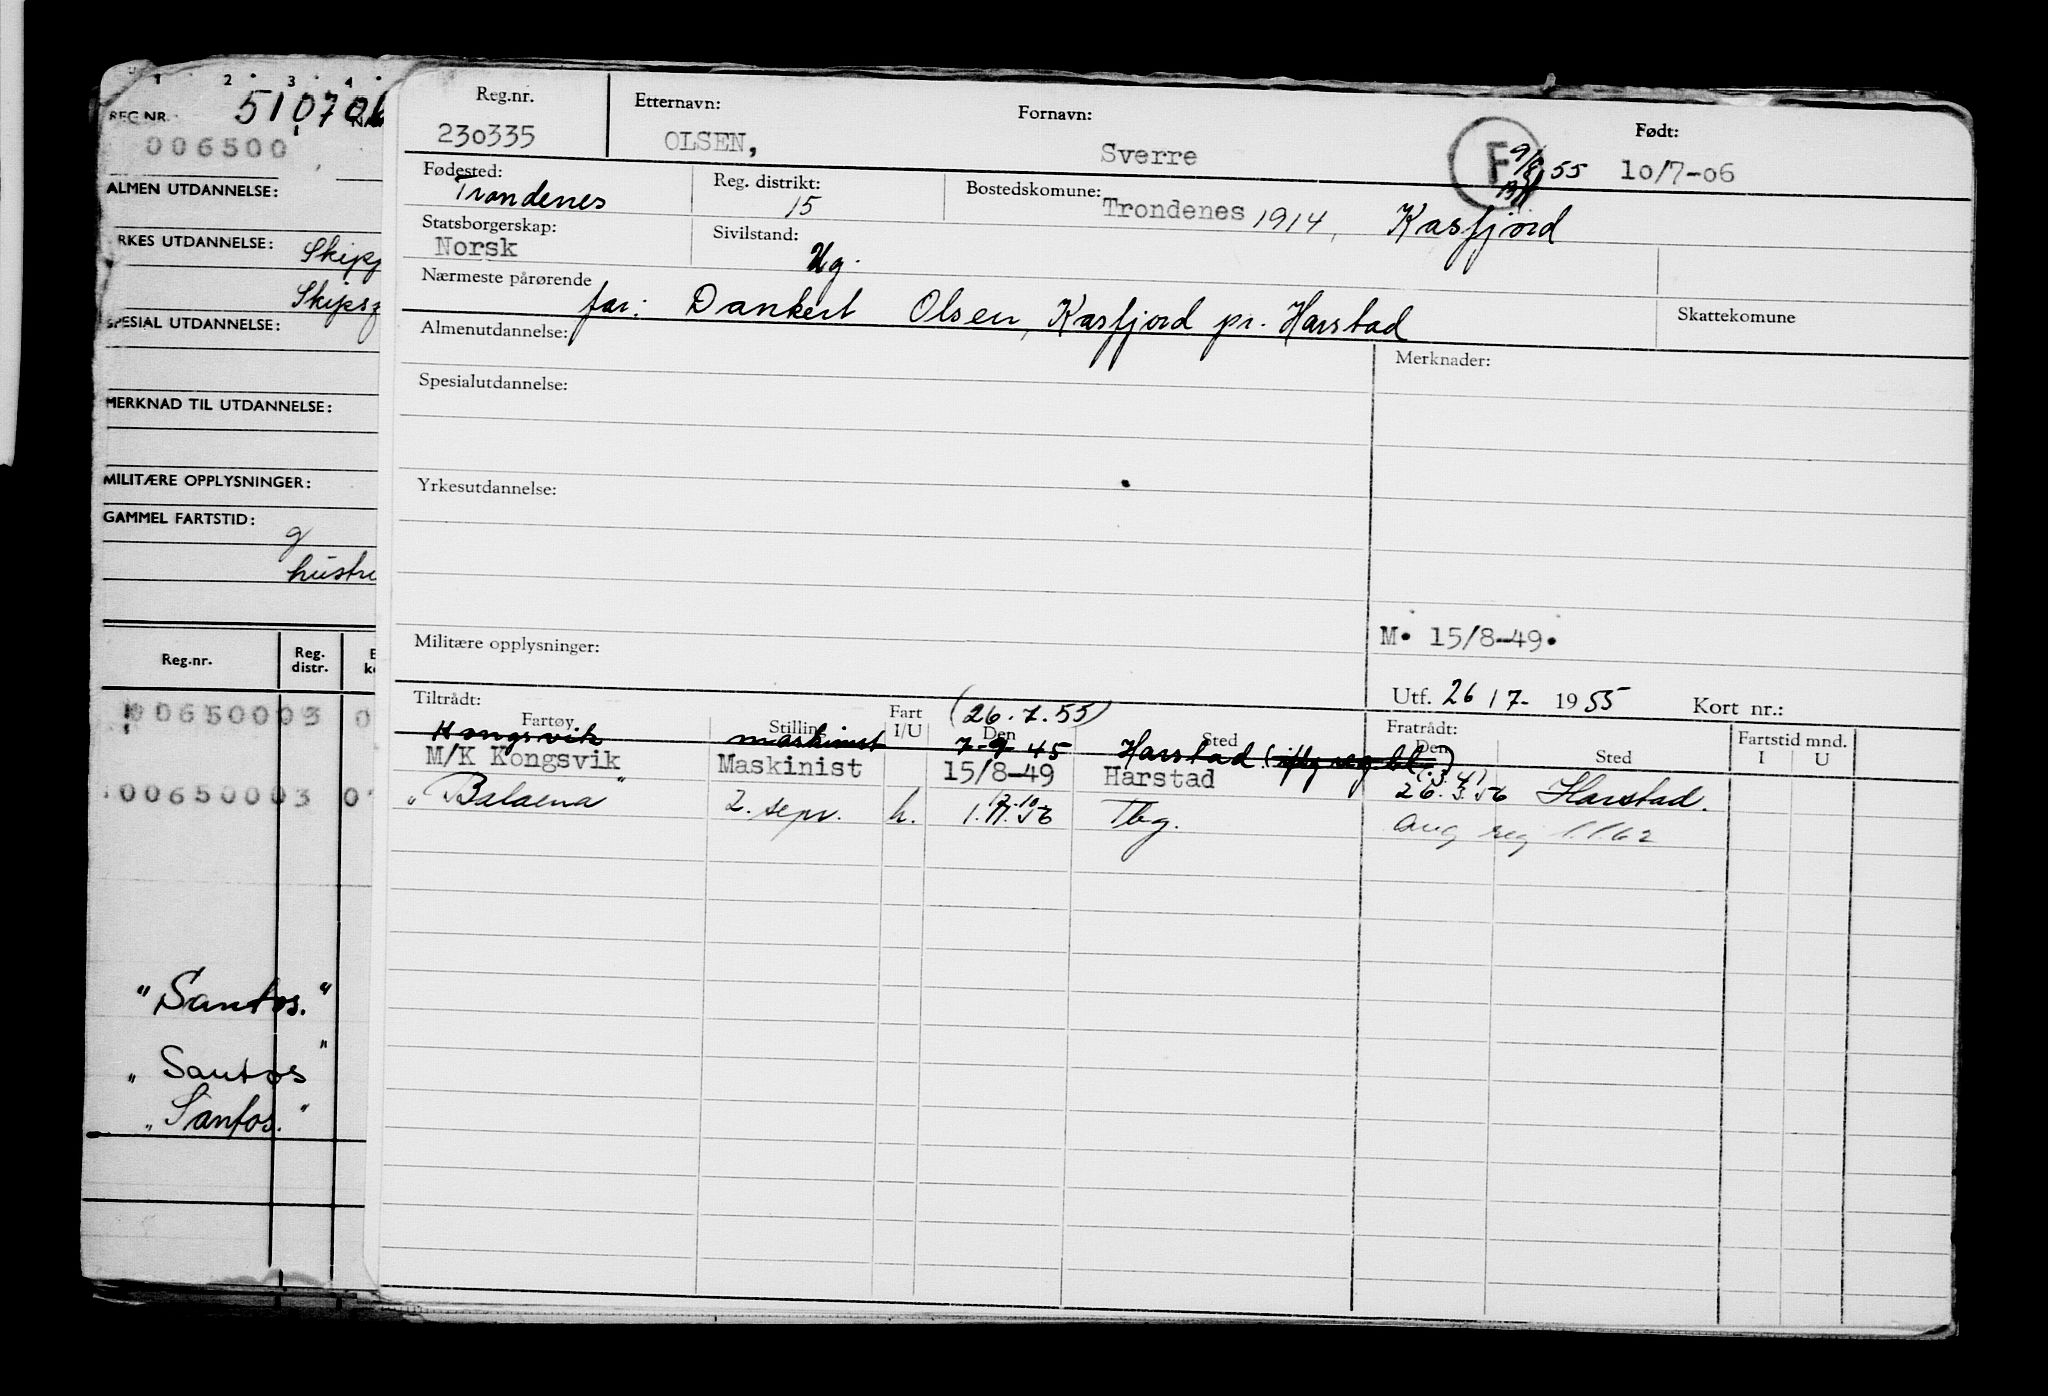 1 2 3 4
REG NR. 510706
006500
ALMEN UTDANNELSE:
RKES UTDANNELSE: Skipp
Skipsg
SPESIAL UTDANNELSE:
MERKNAD TIL UTDANNELSE:
MILITÆRE OPPLYSNINGER:
GAMMEL FARTSTID:
g
hustru
Reg.nr. Reg. distr.
00650003 0
00650003 0
"Santos."
"Santos"
"Santos."
Reg.nr. Etternavn: Fornavn: Født:
230335 OLSEN, Sverre F 9/8 55 10/7-06
Fødested: Reg. distrikt: Bostedskomune:
Trondenes 15 Trondenes 1914, Kasfjord
Statsborgerskap: Sivilstand:
Norsk Ug.
Nærmeste pårørende Skattekomune
far: Dankert Olsen, Kasfjord pr. Harstad
Almenutdannelse: Merknader:
Spesialutdannelse:
Yrkesutdannelse:
Militære opplysninger: M. 15/8-49.
Utf. 26/7- 1955 Kort nr.:
Tiltrådt: (26.7.55) Fratrådt:
Fartøy Stilling Fart I/U Den Sted Den Sted Fartstid mnd. I U
Kongsvik maskinist 7-9 45 Harstad (iflg reg.bl.)
M/K Kongsvik Maskinist 15/8-49 Harstad 26.3.56 Harstad.
"Balaena" 2. sepr. h. 1.11.56 Tbg. Avg reg 1.1.62